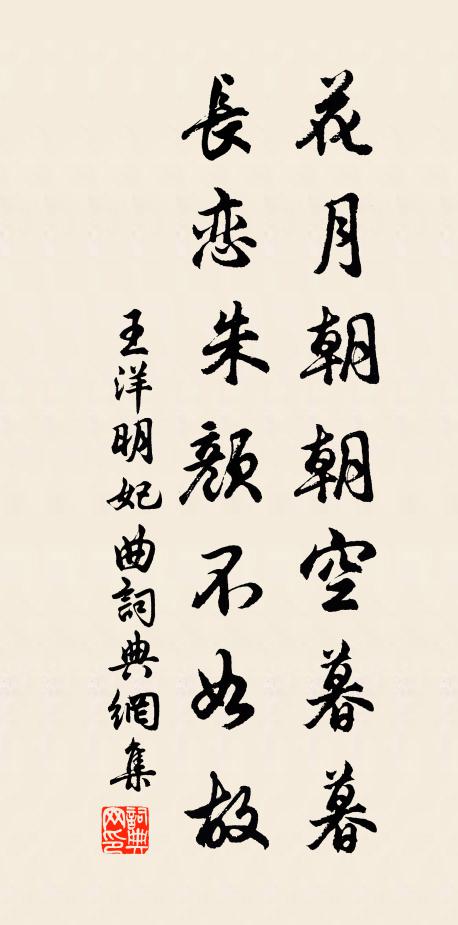 花月朝朝空暮暮
長恋朱顏不如故
王洋明妃曲詞典網集
詞典
网印